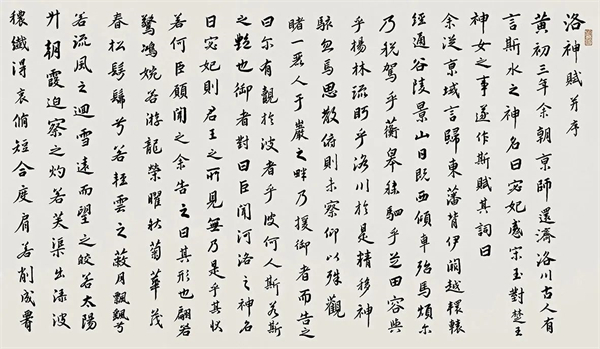 洛神賦并序
黃初三年余朝京師還濟洛川古人有
言斯水之神名曰宓妃感宋玉對楚王
神女之事遂作斯賦其詞曰
余從京域言歸東藩背伊闕越轘轅
經通谷陵景山日既西傾車殆馬煩爾
乃稅駕乎蘅皋秣駟乎芝田容與
乎楊林流眄乎洛川於是精移神
駭忽焉思散俯則未察仰以殊觀
睹一麗人于巖之畔乃援御者而告之
曰尔有覩於彼者乎彼何人斯若斯
之艷也御者對曰臣聞河洛之神名
曰宓妃則君王之所見無乃是乎其狀
若何臣願聞之余告之曰其形也翩若
驚鴻婉若游龍榮曜秋菊華茂
春松髣髴兮若輕雲之蔽月飄飖兮
若流風之迴雪遠而望之皎若太陽
升朝霞迫察之灼若芙渠出淥波
穠纖得衷脩短合度肩若削成